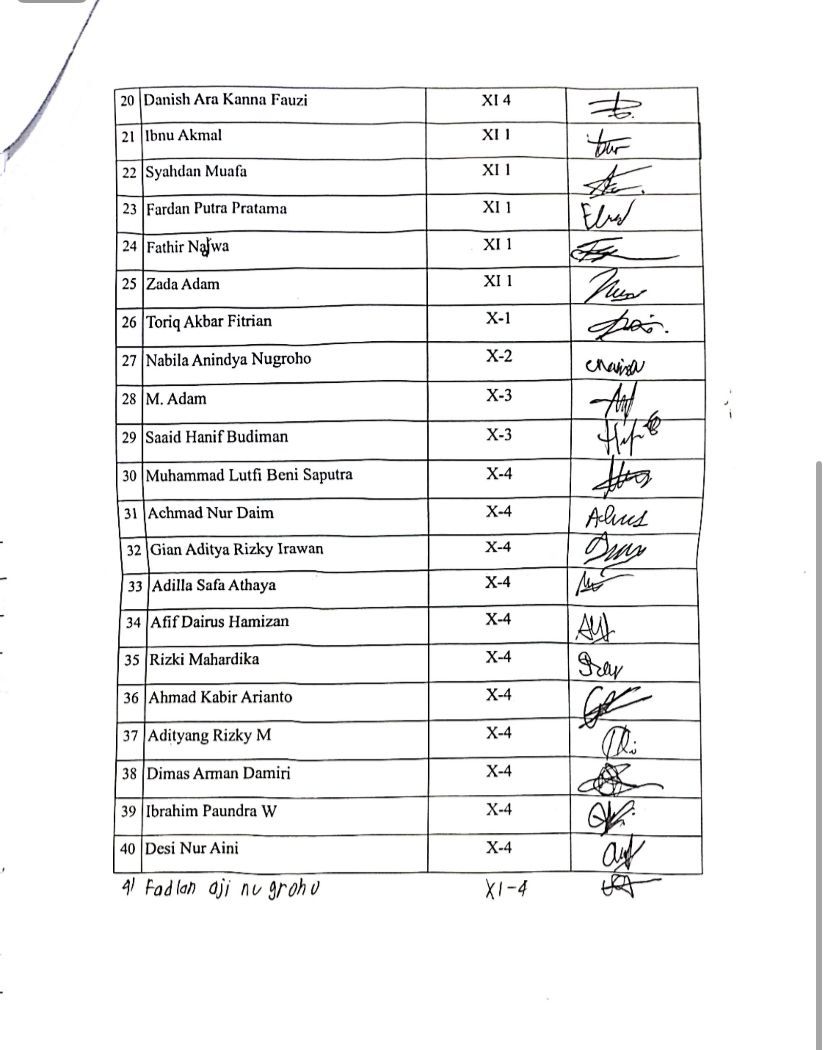 20 Danish Ara Kanna Fauzi XI 4
21 Ibnu Akmal XI 1
22 Syahdan Muafa XI 1
23 Fardan Putra Pratama XI 1
24 Fathir Najwa XI 1
25 Zada Adam XI 1
26 Toriq Akbar Fitrian X-1
27 Nabila Anindya Nugroho X-2
28 M. Adam X-3
29 Saaid Hanif Budiman X-3
30 Muhammad Lutfi Beni Saputra X-4
31 Achmad Nur Daim X-4
32 Gian Aditya Rizky Irawan X-4
33 Adilla Safa Athaya X-4
34 Afif Dairus Hamizan X-4
35 Rizki Mahardika X-4
36 Ahmad Kabir Arianto X-4
37 Adityang Rizky M X-4
38 Dimas Arman Damiri X-4
39 Ibrahim Paundra W X-4
40 Desi Nur Aini X-4
41 Fadlan aji nugroho XI-4